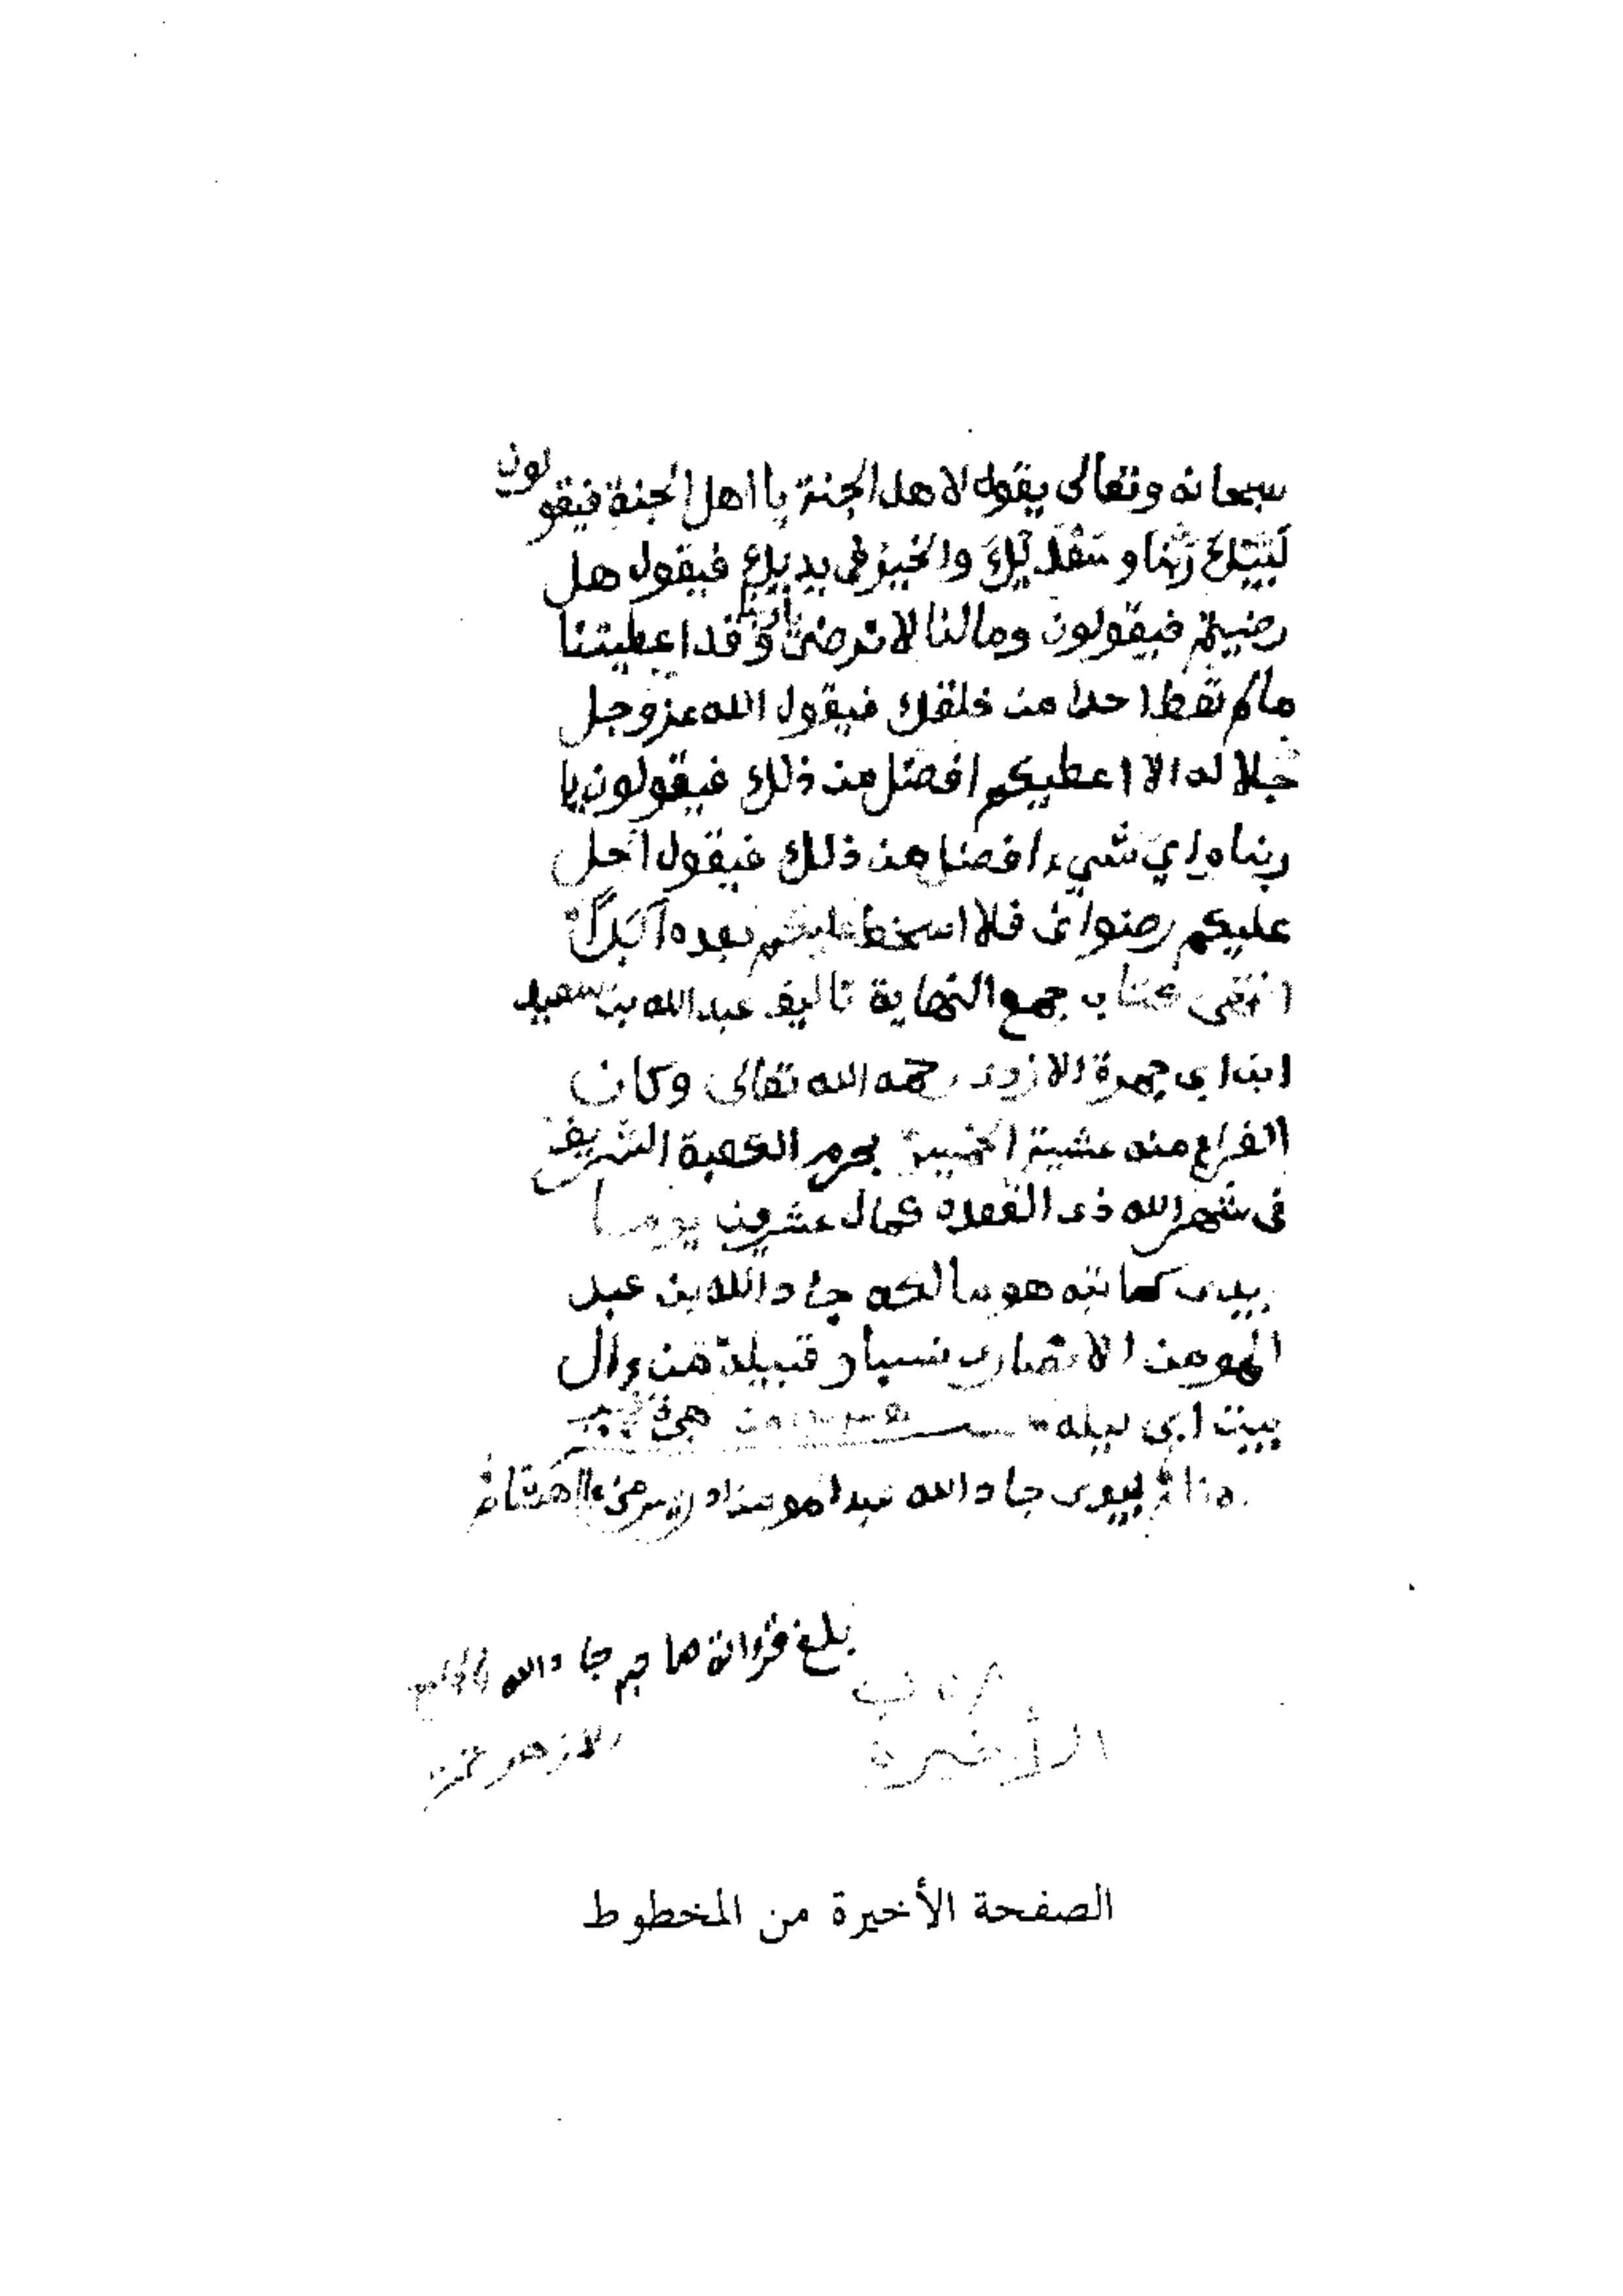 سبحانه وتعالى يقول لاهل الجنة يا اهل الجنة فيقولون
لَبَّيْكَ رَبَّنا وسَعْدَيْكَ والخير في يديك فيقول هل
رضيتم فيقولون ومالنا لا نرضى وقد اعطيتنا
مالم تعط احدا من خلقك فيقول الله عز وجل
جلاله الا اعطيكم افضل من ذلك فيقولون يا
ربنا واي شيء افضل من ذلك فيقول احل
عليكم رضواني فلا اسخط عليكم بعده ابدًا
انتهى كتاب جمع النهاية تاليف عبد الله بن سعيد
ابن ابي جمرة الازدي رحمه الله تعالى وكان
الفراغ منه عشية الخميس بحرم الكعبة الشريف
في شهر الله ذي القعده كمال عشرين يوما
بيدي كاتبه هو مالكه جاد الله بن عبد
المومن الانصاري نسبا و قبيلة من وال
بيت ابي ليله
جاد الله عبد المومن
بلغ قراة جاد الله
الازهر
الأخيرة
الصفحة الأخيرة من المخطوط